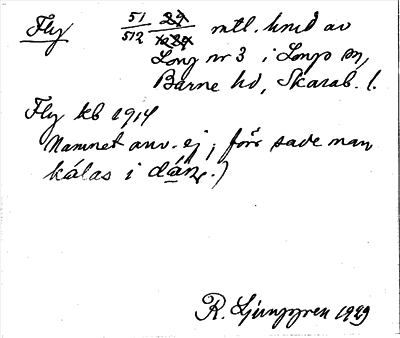 Fly 51/512 mtl. hmd av
Long nr 3 i Longs sn,
Barne hd, Skarab. l.
Fly kb 1914
Namnet anv. ej; förr sade man
kálas i
R. Ljunggren 1929